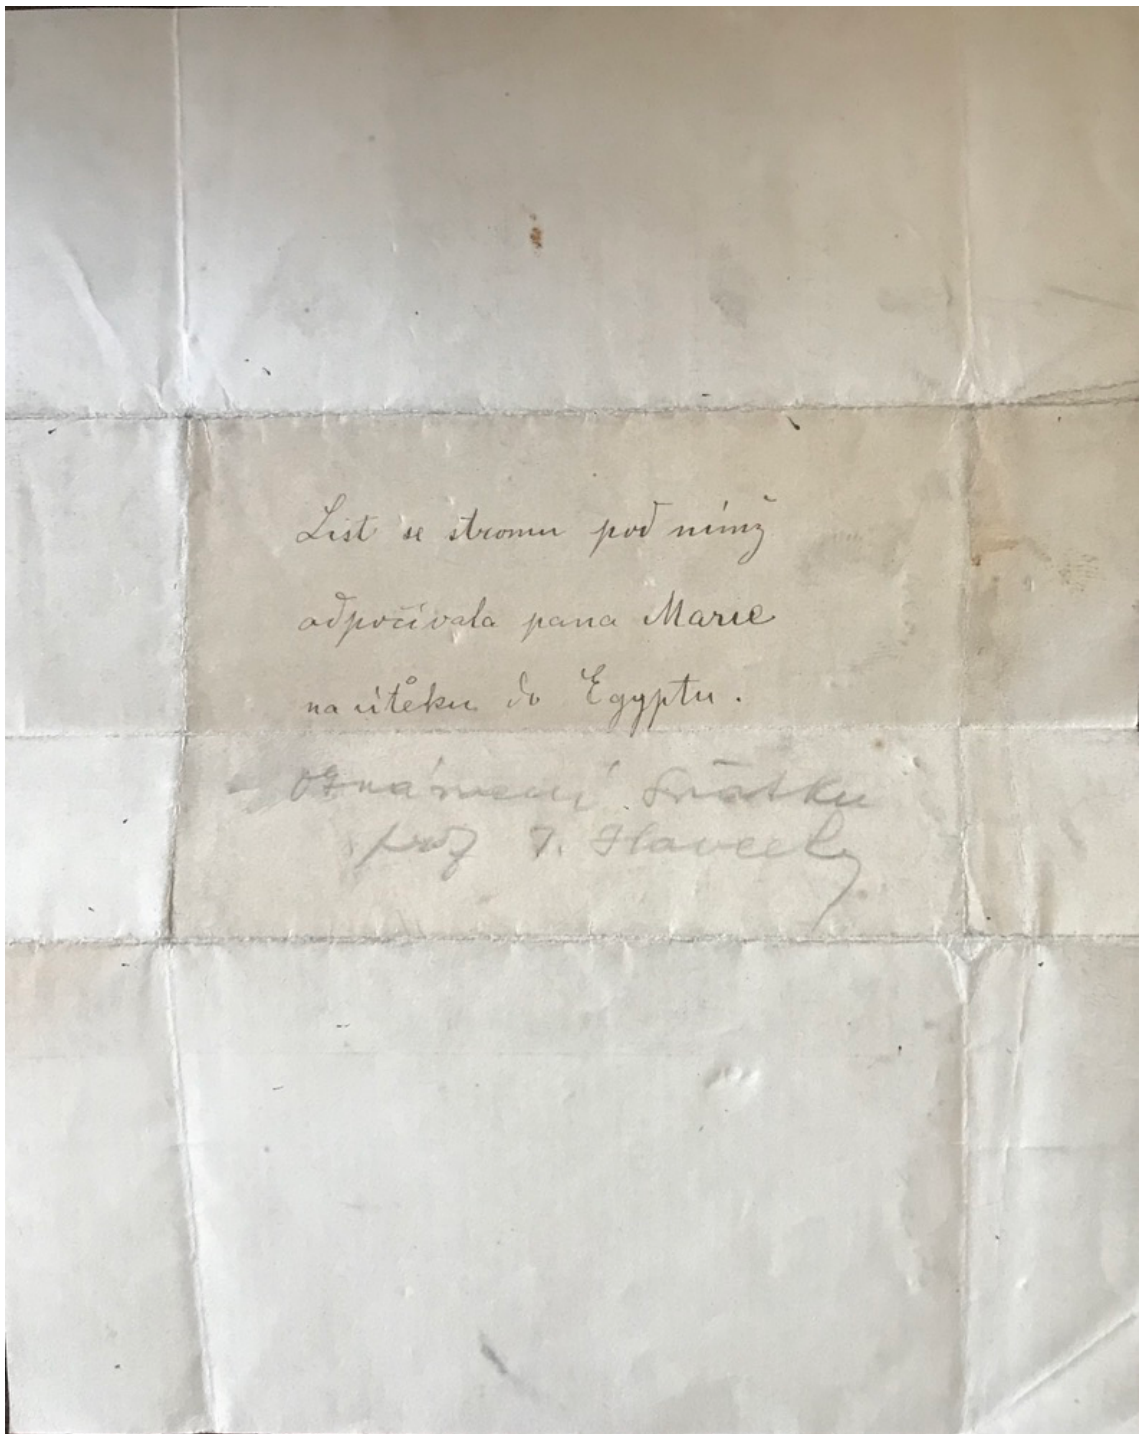 List se stromu pod nímž
odpočívala pana Marie
na útěku do Egyptu.
Oznámení Sňatku
prof J.